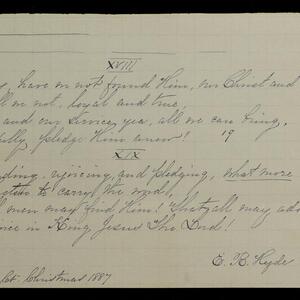 XVIII
have we not found Him, our Christ and
we not, loyal and true,
and our service, yea, all we can bring,
fully pledge Him anew! 19
XIX
ding, rejoicing, and pledging, what more
to carry the word,
men may find Him! That all may ado
ice in King Jesus The Lord!
E. B. Hyde
Christmas 1887